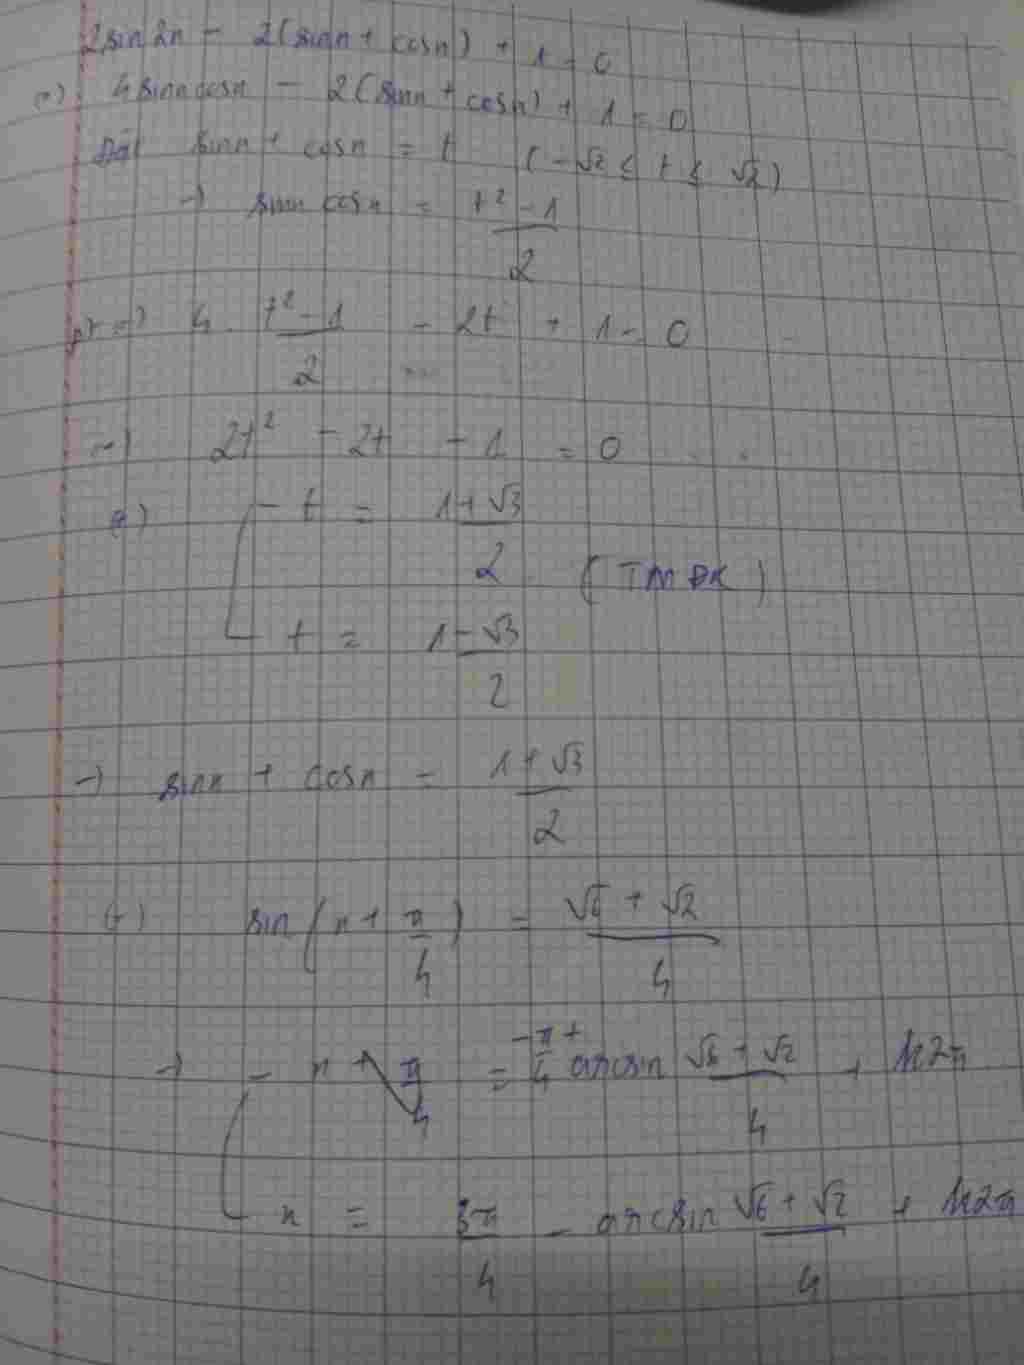 2sin2x - 2(sinx + cosx) + 1 = 0
(=) 4sinxcosx - 2(sinx + cosx) + 1 = 0
Đặt sinx + cosx = t (-√2 ≤ t ≤ √2)
→ sinx cosx = (t² - 1)/2
pt => 4 . (t² - 1)/2 - 2t + 1 = 0
(=) 2t² - 2t - 1 = 0
(=) [ t = (1+√3)/2
(TMĐK)
t = (1-√3)/2
→ sinx + cosx = (1+√3)/2
(=) sin(x + π/4) = (√6 + √2)/4
→ [ x = -π/4 + arcsin (√6 + √2)/4 + k2π
x = 3π/4 - arcsin (√6 + √2)/4 + k2π